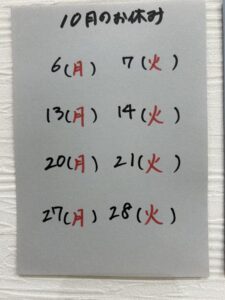 10月のお休み
6(月) 7(火)
13(月) 14(火)
20(月) 21(火)
27(月) 28(火)